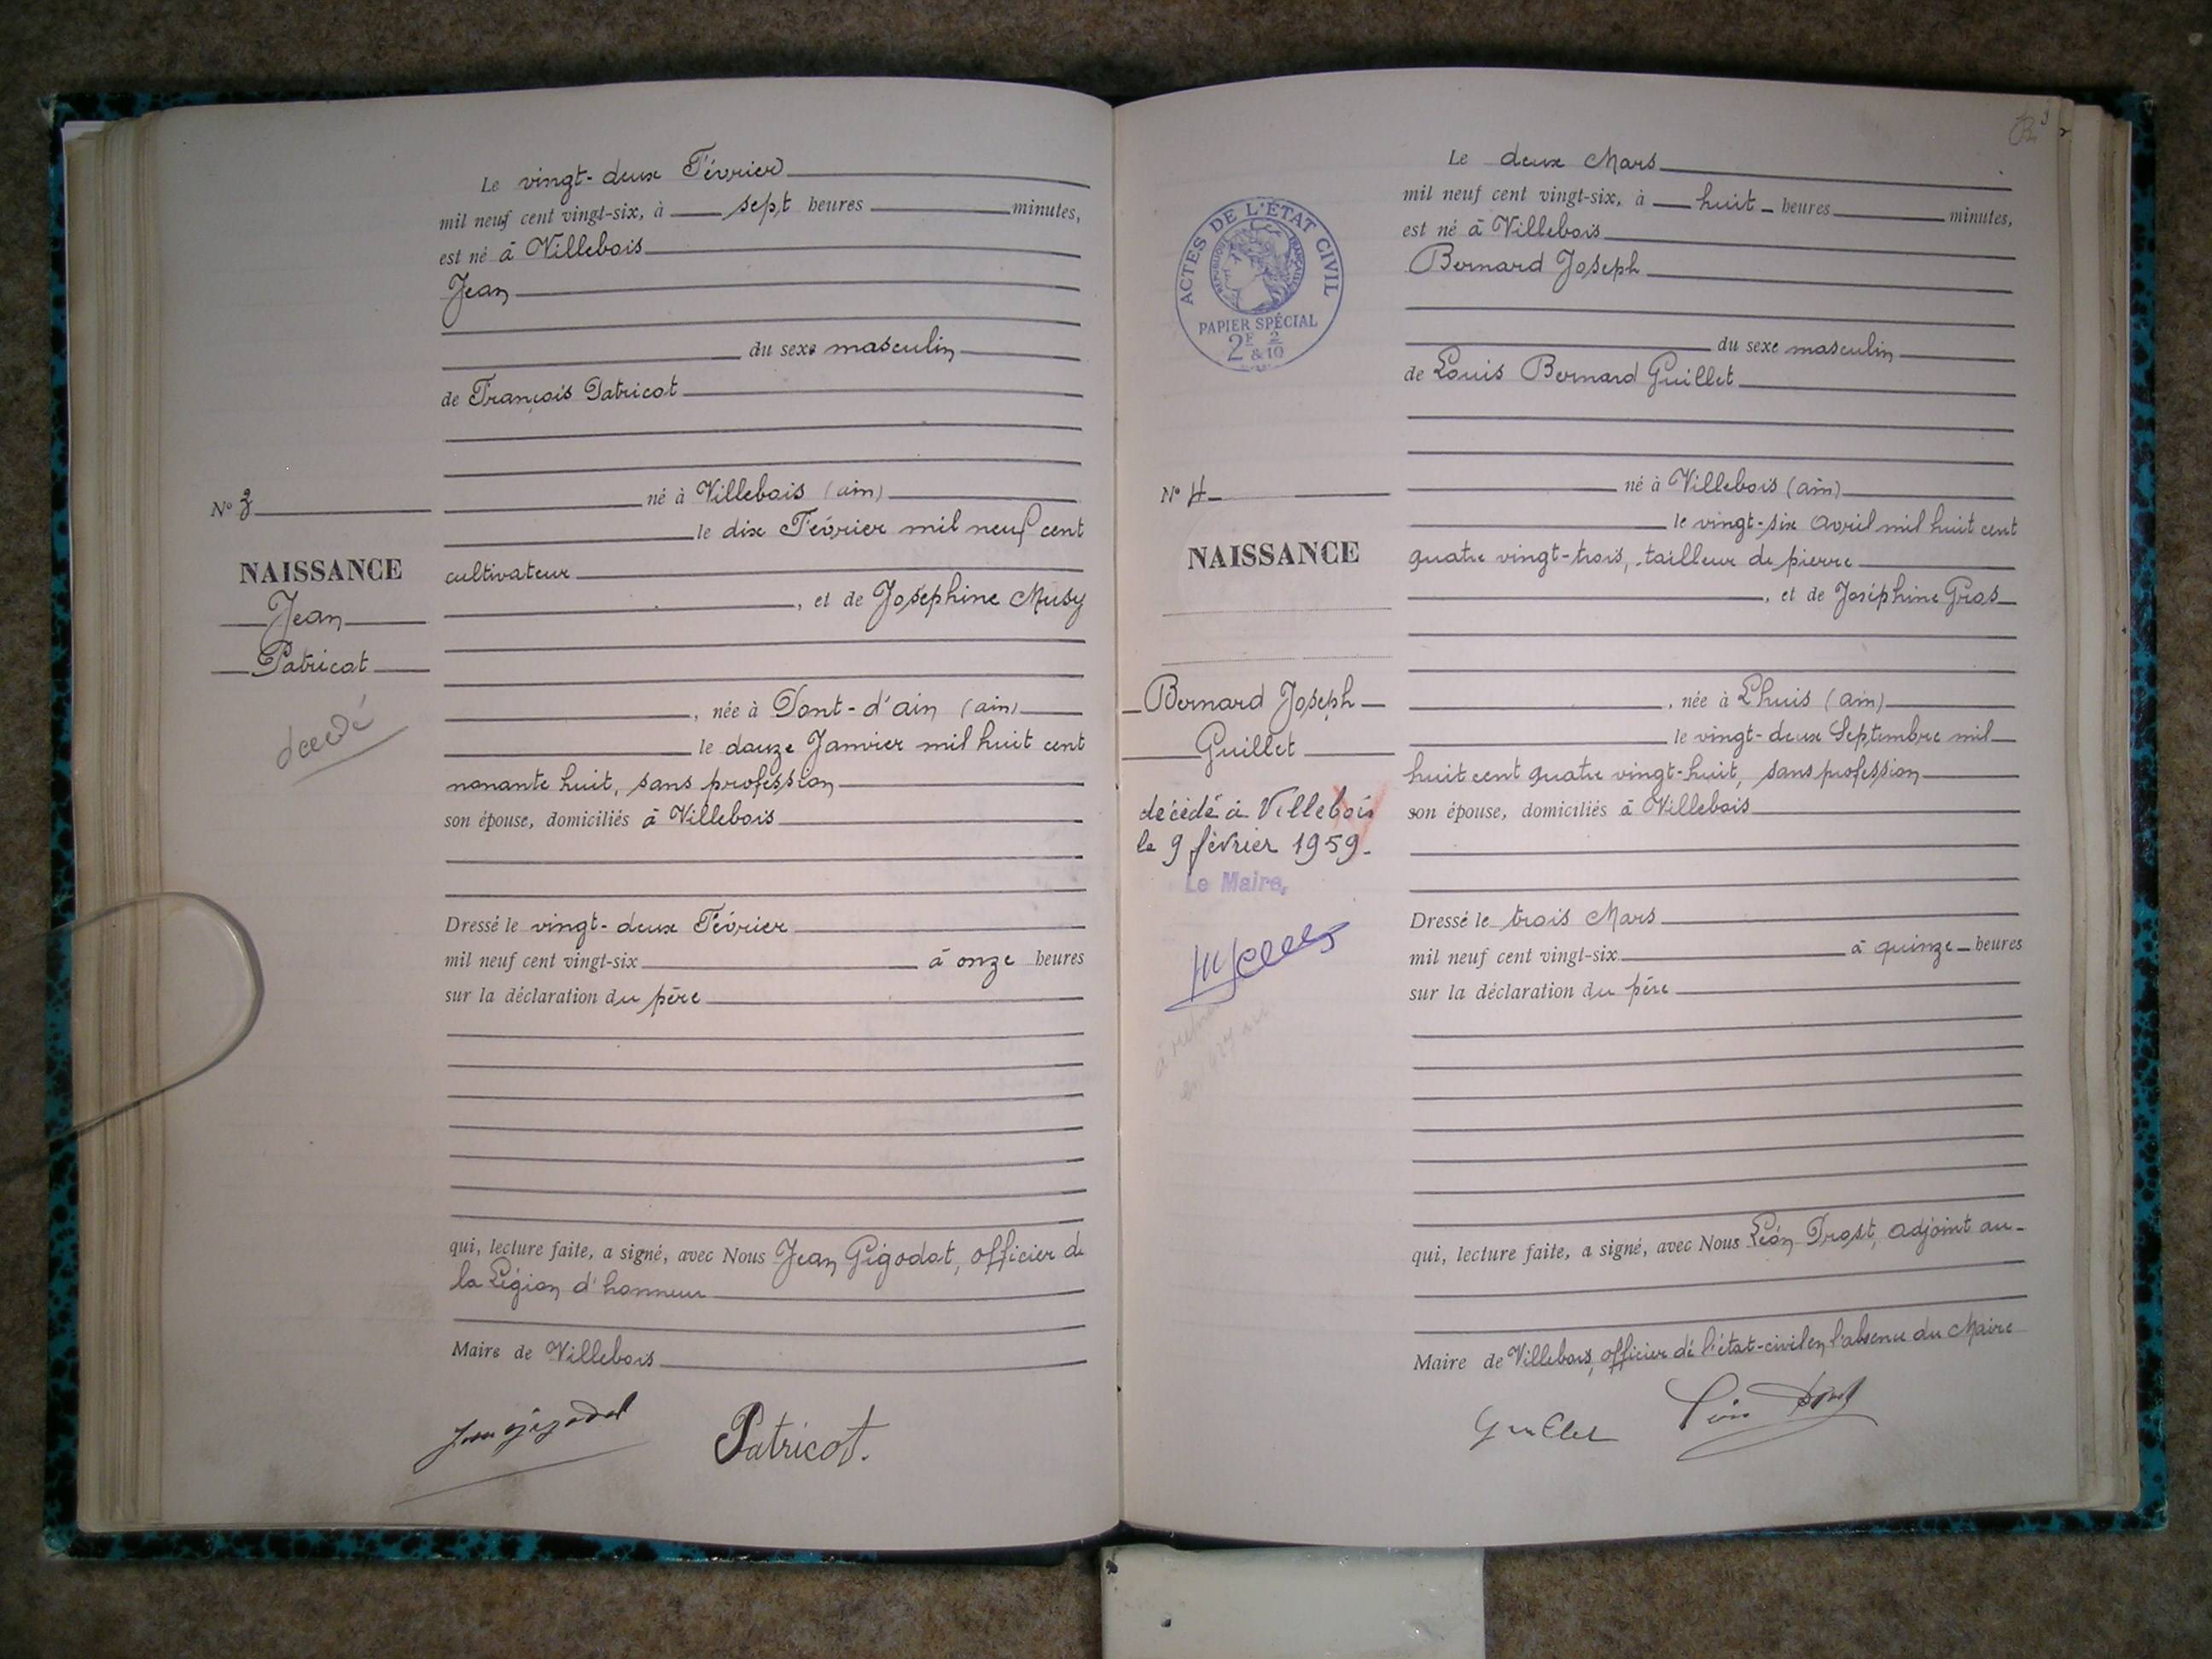 Le vingt-deux Février
mil neuf cent vingt-six, à sept heures minutes,
est né à Villebois
Jean
du sexe masculin
de François Patricot
né à Villebois (ain)
le dix Février mil neuf cent
cultivateur
, et de Joséphine Musy
, née à Pont-d'ain (ain)
le douze Janvier mil huit cent
nonante huit, sans profession
son épouse, domiciliés à Villebois
Dressé le vingt-deux Février
mil neuf cent vingt-six à onze heures
sur la déclaration du père
qui, lecture faite, a signé, avec Nous Jean Gigodot, officier de
la Légion d'honneur
Maire de Villebois
Jean Gigodot
Patricot.
N° 3
NAISSANCE
Jean
Patricot
décédé
Le deux Mars
mil neuf cent vingt-six, à huit heures minutes,
est né à Villebois
Bernard Joseph
du sexe masculin
de Louis Bernard Guillet
né à Villebois (ain)
le vingt-six Avril mil huit cent
quatre vingt-trois, tailleur de pierre
, et de Joséphine Gros
, née à Lhuis (ain)
le vingt-deux Septembre mil
huit cent quatre vingt-huit, sans profession
son épouse, domiciliés à Villebois
Dressé le trois Mars
mil neuf cent vingt-six à quinze heures
sur la déclaration du père
qui, lecture faite, a signé, avec Nous Léon Prost, adjoint au
Maire de Villebois, officier de l'état-civil en l'absence du Maire
Guillet
Léon Prost
ACTES DE L'ÉTAT CIVIL
RÉPUBLIQUE FRANÇAISE
PAPIER SPÉCIAL
2F 2
&10
N° 4
NAISSANCE
Bernard Joseph
Guillet
décédé à Villebois
le 9 février 1959.
Le Maire,